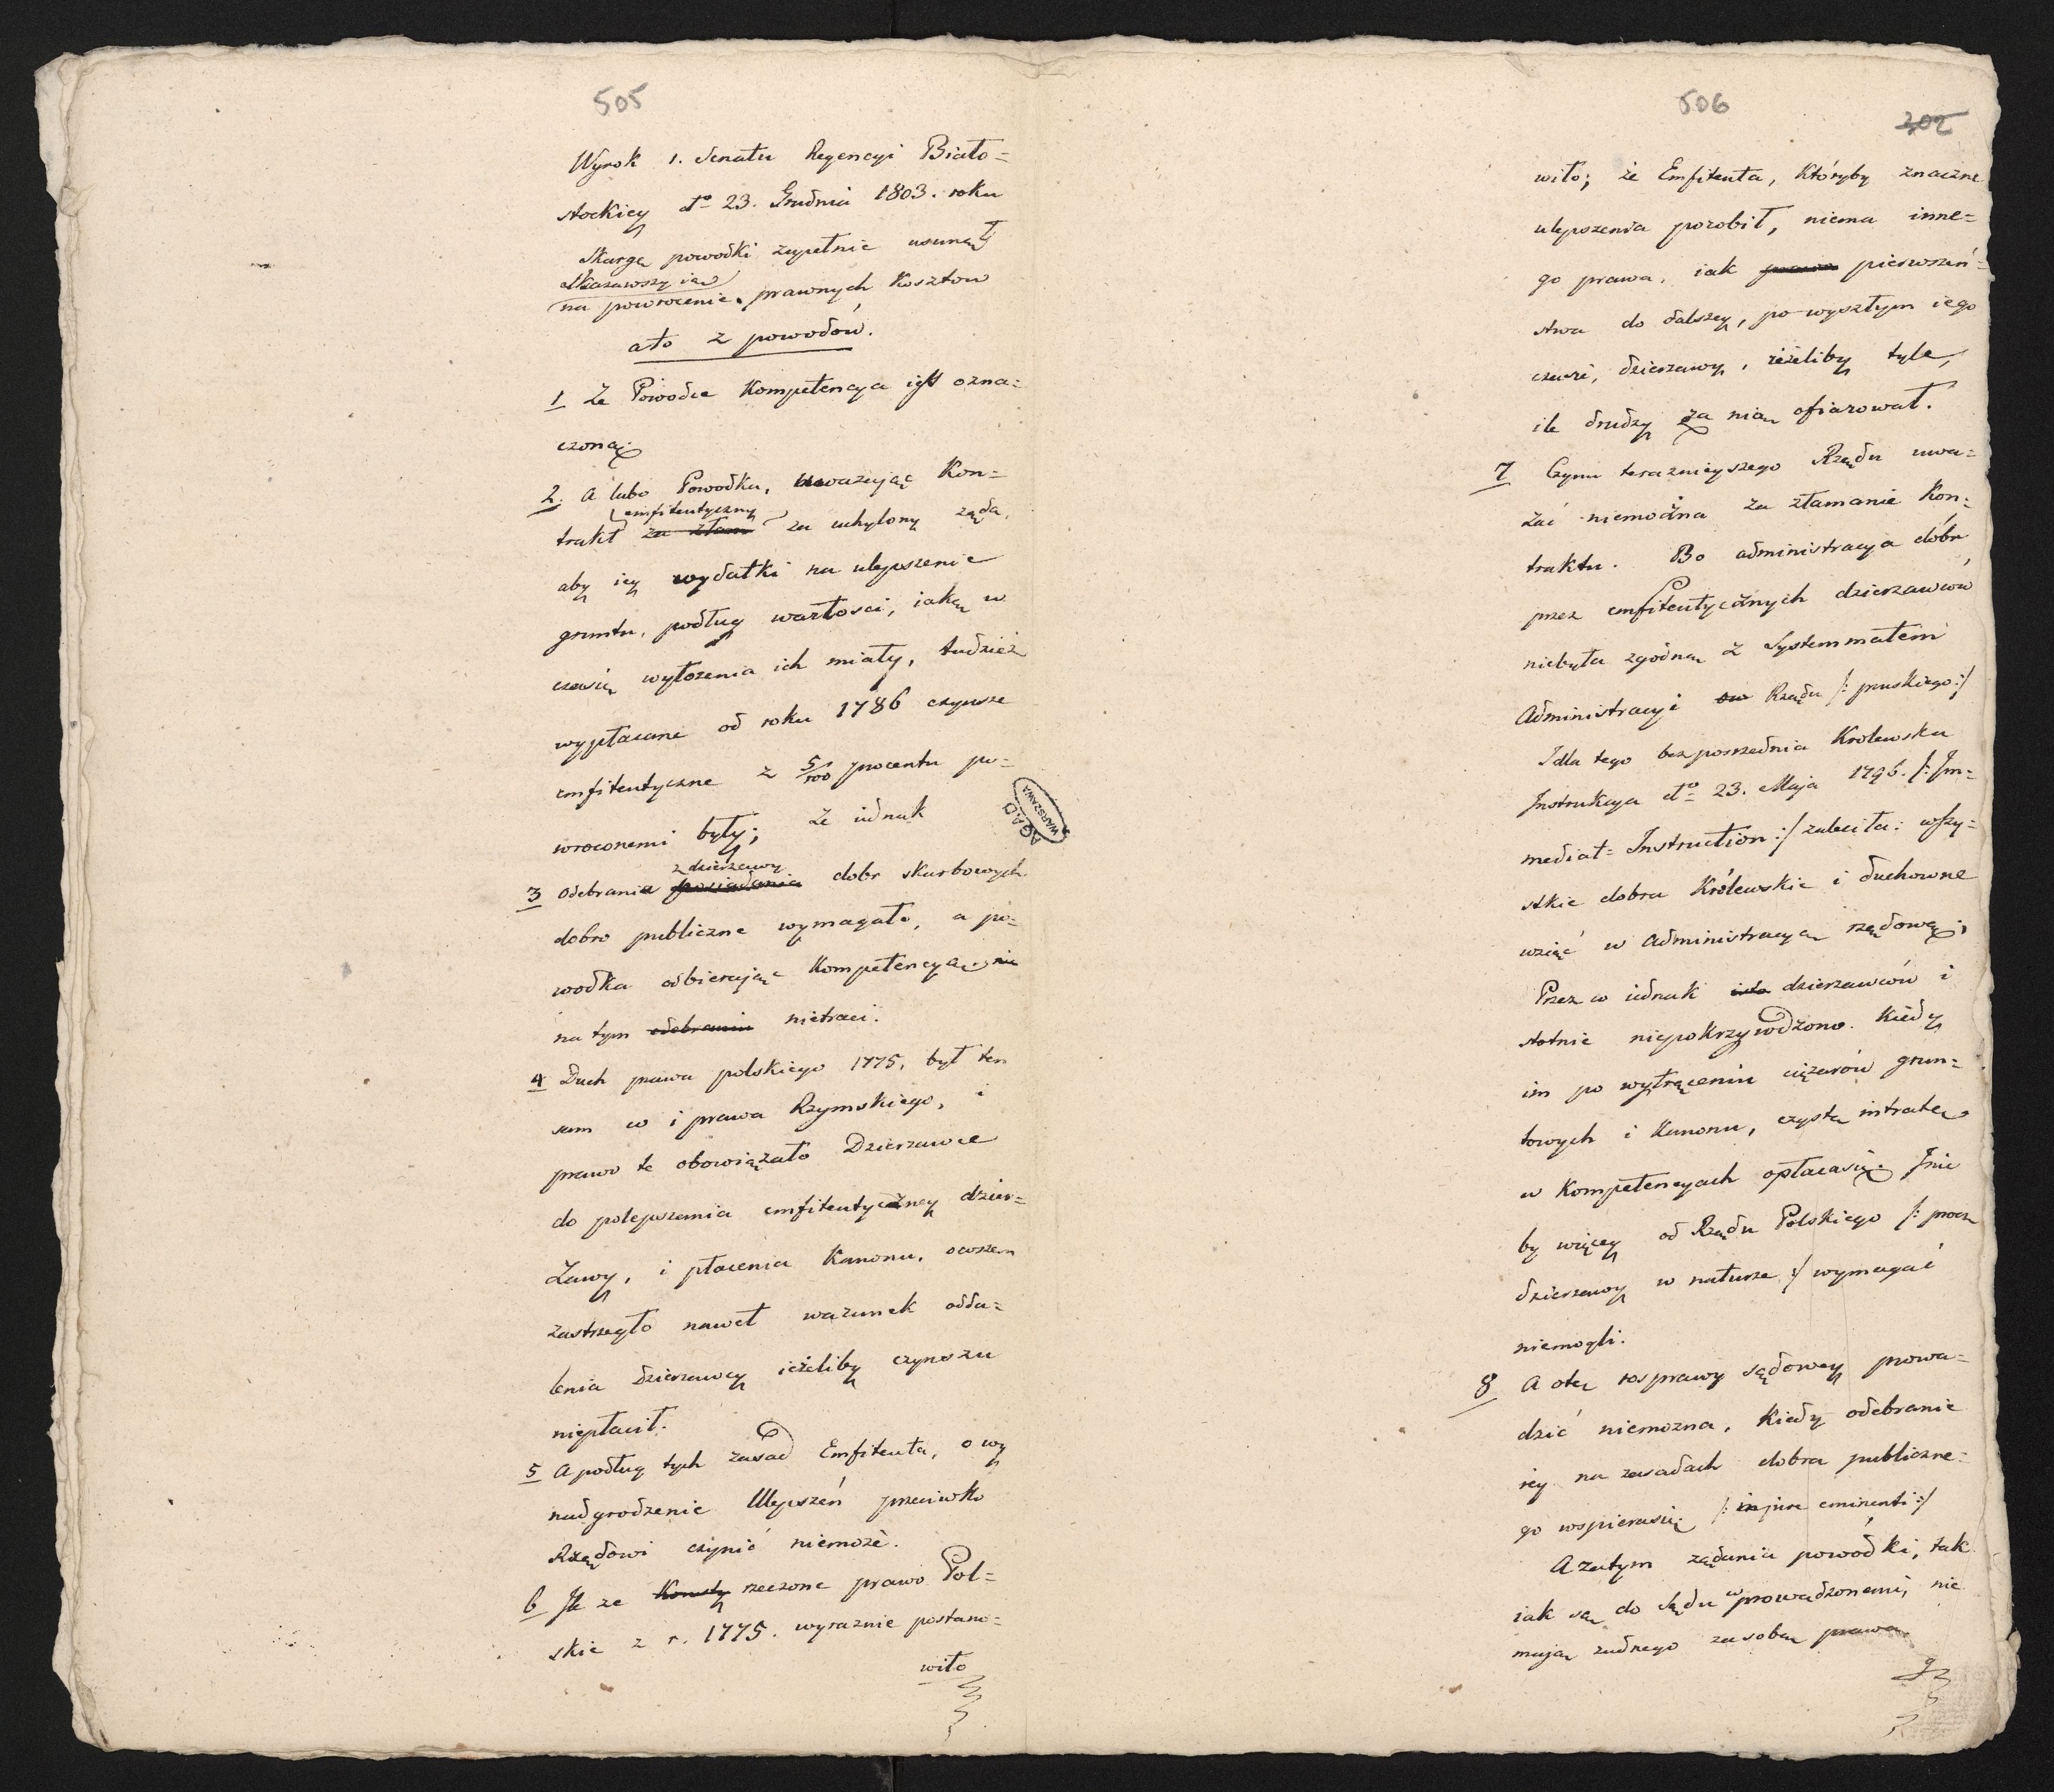 505
Wyrok 1. Senatu Regencyi Biało=
stockiey do 23. Grudnia 1803. roku
Skargę powodki zupełnie usunął
Skazawszy ią
na powrocenie prawnych kosztow
ato z powodów.
1 Że Powodce Kompetencya iest ozna=
czoną
2. A lubo Powodka, uważając Kon=
emfiteutyczny
trakt za złam za uchylony żąda,
aby iey wydatki na ulepszenie
gruntu, podług wartosci, iaką w
czasie wyłożenia ich miały, tudzież
wypłacane od roku 1786 czynsze
emfiteutyczne z 5/100 procentu po=
wroconemi były; że iednak
z dzierzawy
3 Odebrania posiadania dobr skarbowych
dobro publiczne wymagało, a po=
wodka odbierając Kompetencyą nie
na tym odebraniu nietraci.
4 Duch prawa polskiego 1775, był ten
sam co i prawa Rzymskiego, i
prawo te obowiązało Dzierzawce
do polepszenia emfiteutyczney dzier=
żawy, i płacenia Kanonu, owszem
zastrzegło nawet warunek odda=
lenia dzierzawcy ieżeliby czynszu
niepłacił.
5 A podług tych zasad Emfiteuta, o wy
nadgrodzenie Ulepszeń przeciwko
Rządowi czynić niemoże.
6 Ile ze Konsty rzeczone prawo Pol=
skie z r. 1775. wyraznie postano=
wiło
506
302
wiło; że Emfiteuta, któryby znaczne
ulepszenia porobił, niema inne=
go prawa, iak prawo pierwszeń=
stwa do dalszey, po wyszłym iego
czasie, dzierzawy, ieżeliby tyle,
ile drudzy za nią ofiarował.
7 Czynu teraznieyszego Rządu uwa=
żać niemożna za złamanie Kon=
traktu. Bo administracya dóbr
przez emfiteutycznych dzierzawców
niebyła zgodną z Systemmatem
Administracyi Rządu /: pruskiego :/
I dla tego bezposrzednia Krolewska
Instrukcya do 23. Maja 1796. /: Im=
mediat= Instruction :/ zaleciła: wszy=
stkie dobra Królewskie i duchowne
wziąć w Administracyą rządową;
Przez co iednak isto dzierzawców i
stotnie niepokrzywdzono. Kiedy
im po wytrąceniu ciężarów grun=
towych i Kanonu, czysta intrate
w Kompetencyach opłacasię. I nie
by więcey od Rządu Polskiego /: procz
dzierzawy w naturze :/ wymagać
niemogli.
8 A otu rosprawy sądowey prowa=
dzić niemozna, kiedy odebranie
iey na zasadach dobra publiczne=
go wspierasię /: injure eminenti :/
A zatym żądania powodki, tak
iak są do Sądu wprowadzonemi, nie
mają żadnego za sobą prawa.
A.G.A.D.
WARSZAWA